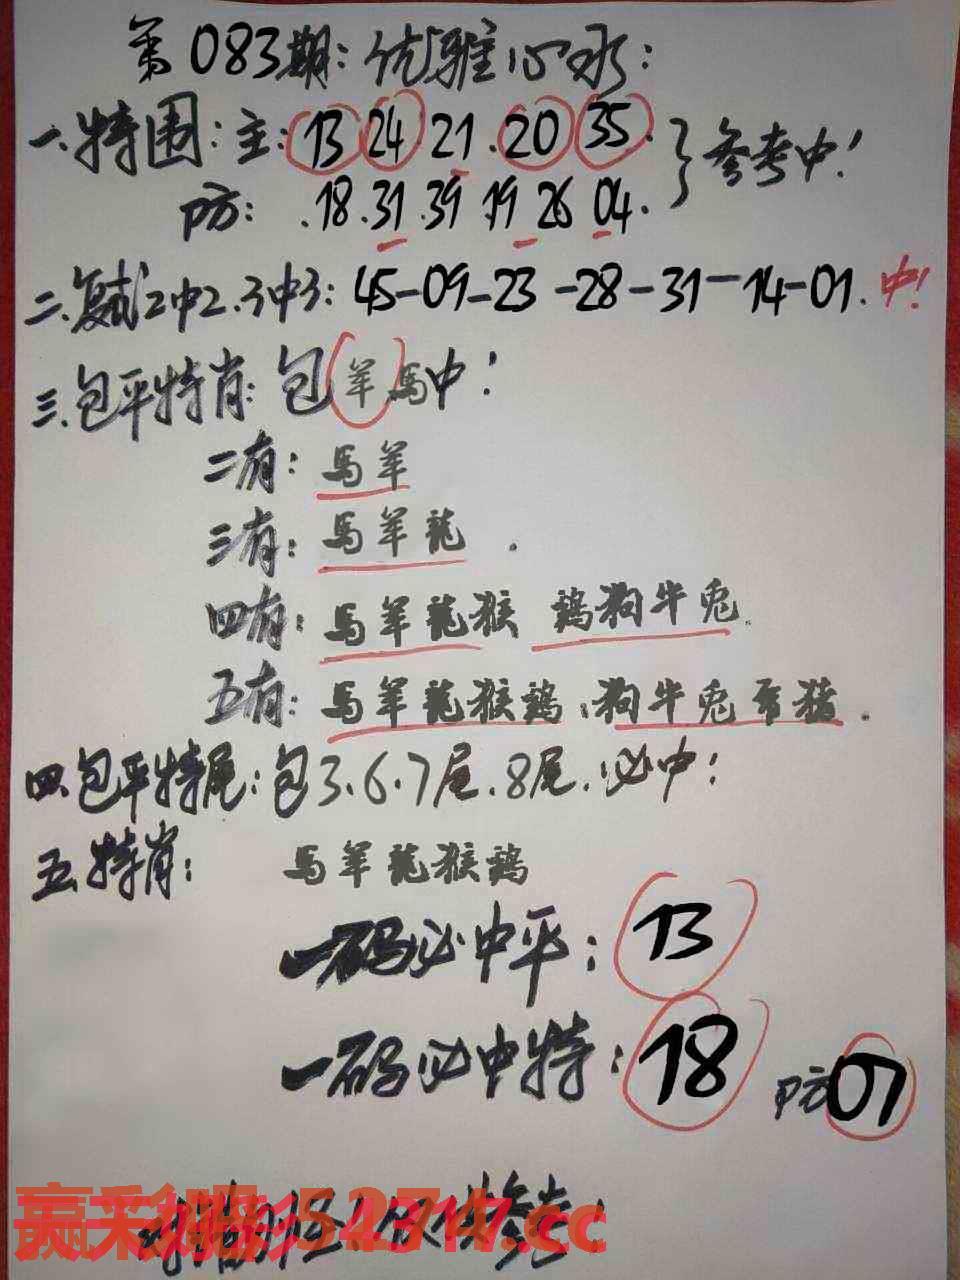 第083期:优雅心水:
一.特围:主:13 24.21.20 35.}参考中!
防:.18.31.39.19 26 04.
二.复试2中2.3中3:45-09-23-28-31-14-01.中!
三.包平特肖:包羊马中!
二有:馬羊
三有:馬羊龍.
四有:馬羊龍猴 鷄狗牛兔.
五有:馬羊龍猴鷄、狗牛兔 猪.
四.包平特尾:包3.6.7尾.8尾.必中!
五.特肖: 馬羊龍猴鷄
一码必中平:13
一码必中特:18 防07
赢彩 52717.cc
仅供参考!